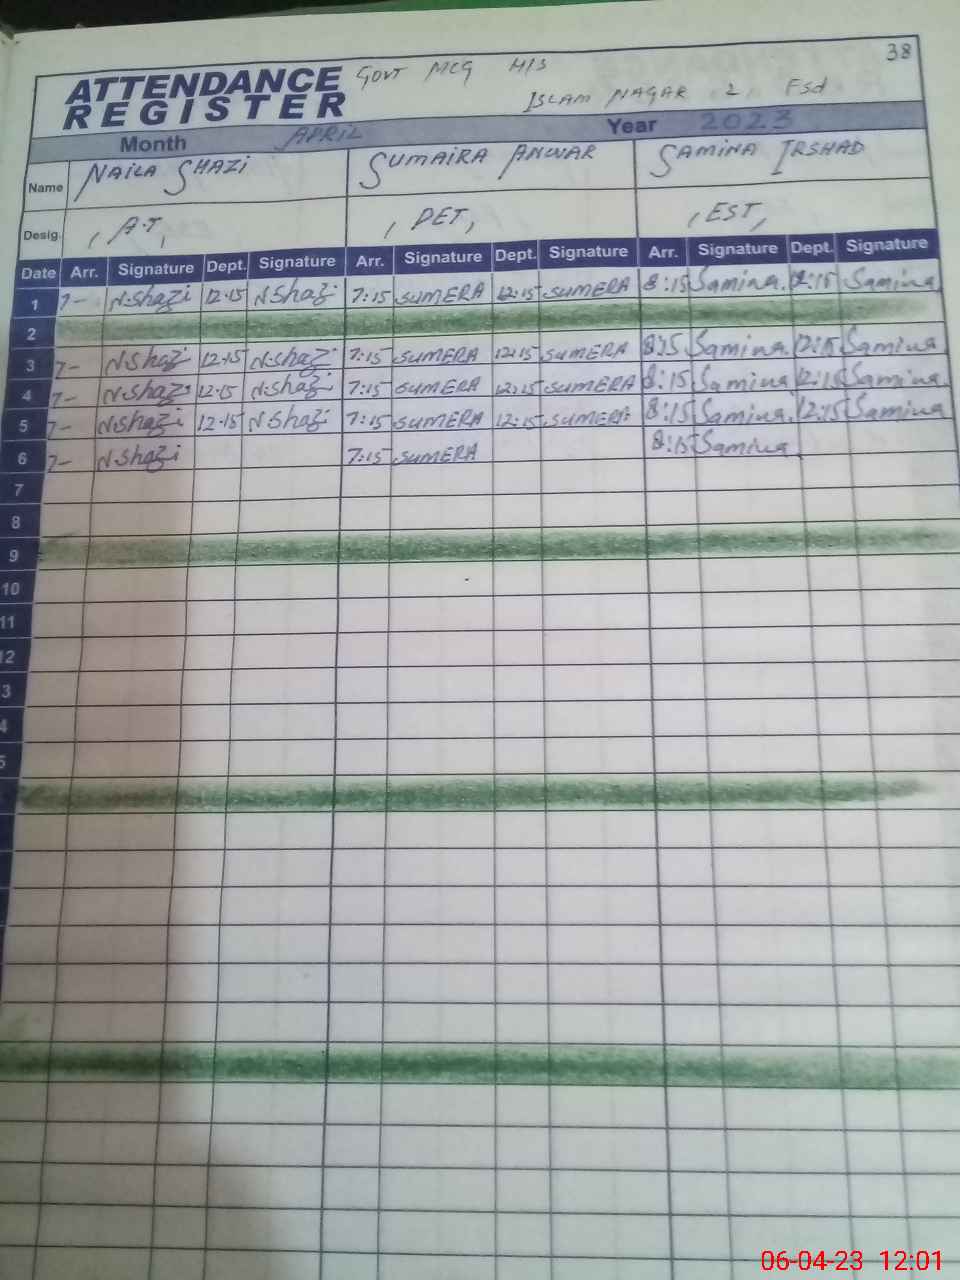 38
ATTENDANCE REGISTER GOVT MCG H/S
ISLAM NAGAR 2 Fsd
Month APRIL Year 2023
Name NAILA SHAZI SUMAIRA ANWAR SAMINA IRSHAD
Desig. , A.T, , PET, , EST,
Date Arr. Signature Dept. Signature Arr. Signature Dept. Signature Arr. Signature Dept. Signature
1 7- N.Shazi 12.15 N.Shazi 7:15 SUMERA 12:15 SUMERA 8:15 Samina. 12:15 Samina
2
3 7- N.Shazi 12.15 N.Shazi 7:15 SUMERA 12:15 SUMERA 8:15 Samina. 12:15 Samina
4 7- N.Shazi 12.15 N.Shazi 7:15 SUMERA 12:15 SUMERA 8:15 Samina 12:15 Samina.
5 7- N.Shazi 12.15 N.Shazi 7:15 SUMERA 12:15 SUMERA 8:15 Samina. 12:15 Samina
6 7- N.Shazi 7:15 SUMERA 8:15 Samina
7
8
9
10
11
12
3
4
5
06-04-23 12:01